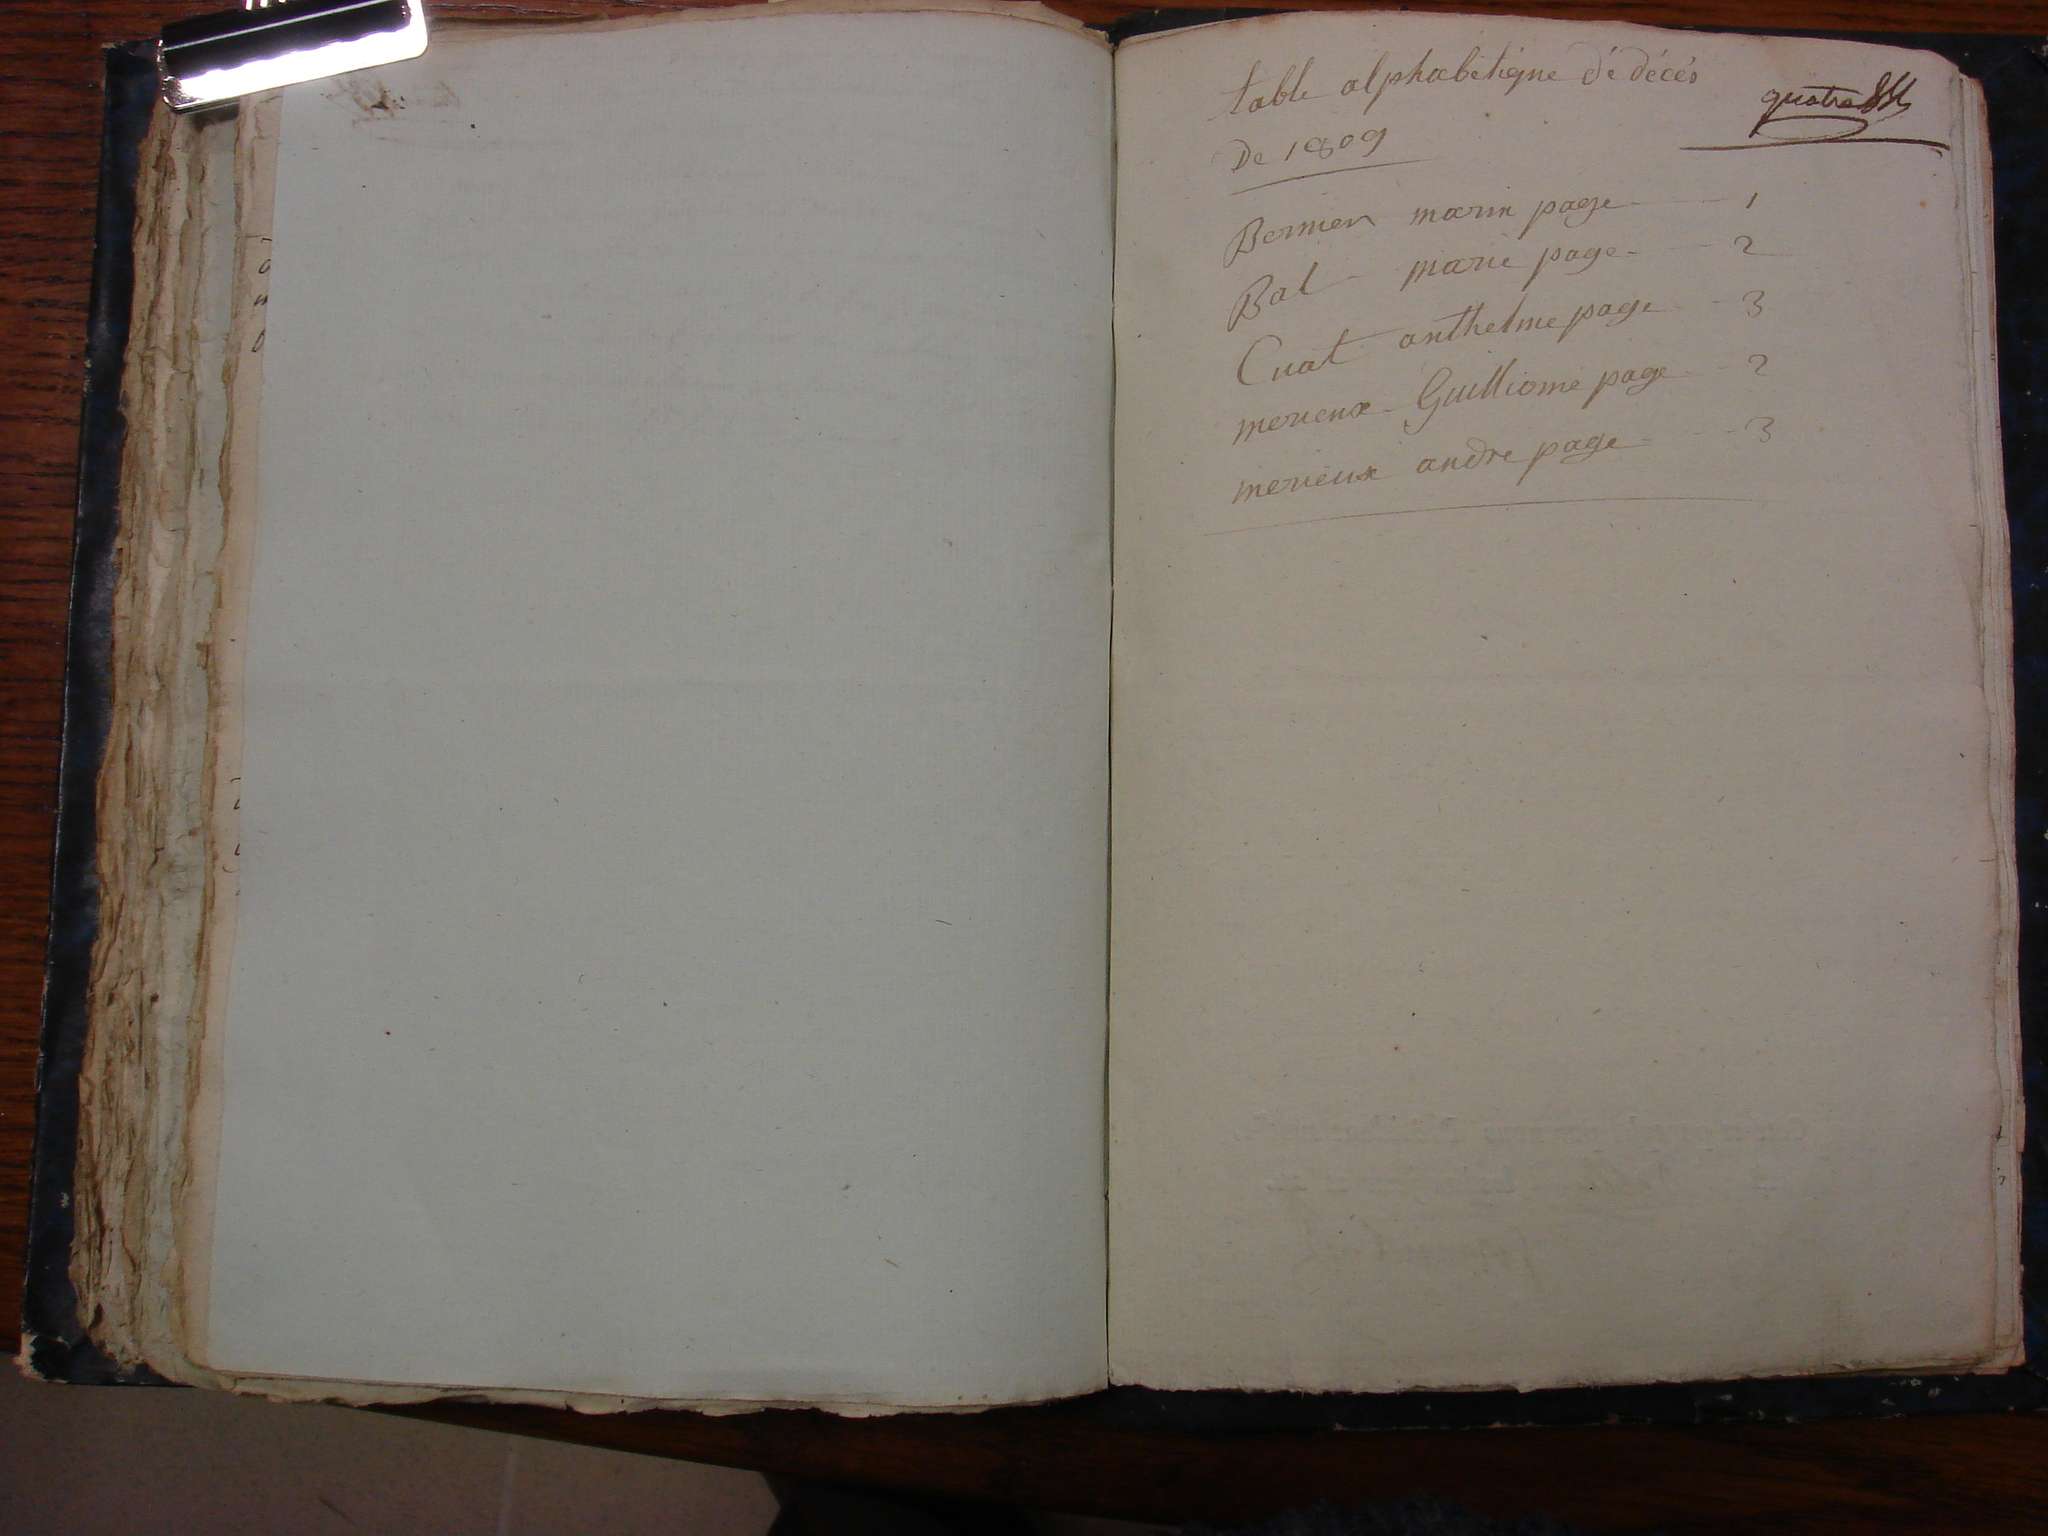 table alphabétique dé décés
quatre
De 1809
Bernier marin page 1
Bal marie page 2
Cuat anthelme page 3
merieux Guilliome page 2
merieux andre page 3